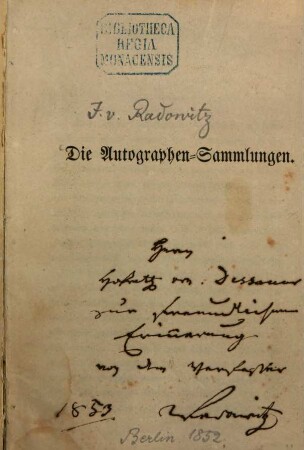 BIBLIOTHECA
REGIA
MONACENSIS
J. v. Radowitz
Die Autographen=Sammlungen.
Herrn
Hofrath von Dessauer
zur freundlichen
Erinnerung
von dem Verfasser
1853 Radowitz
Berlin 1852.